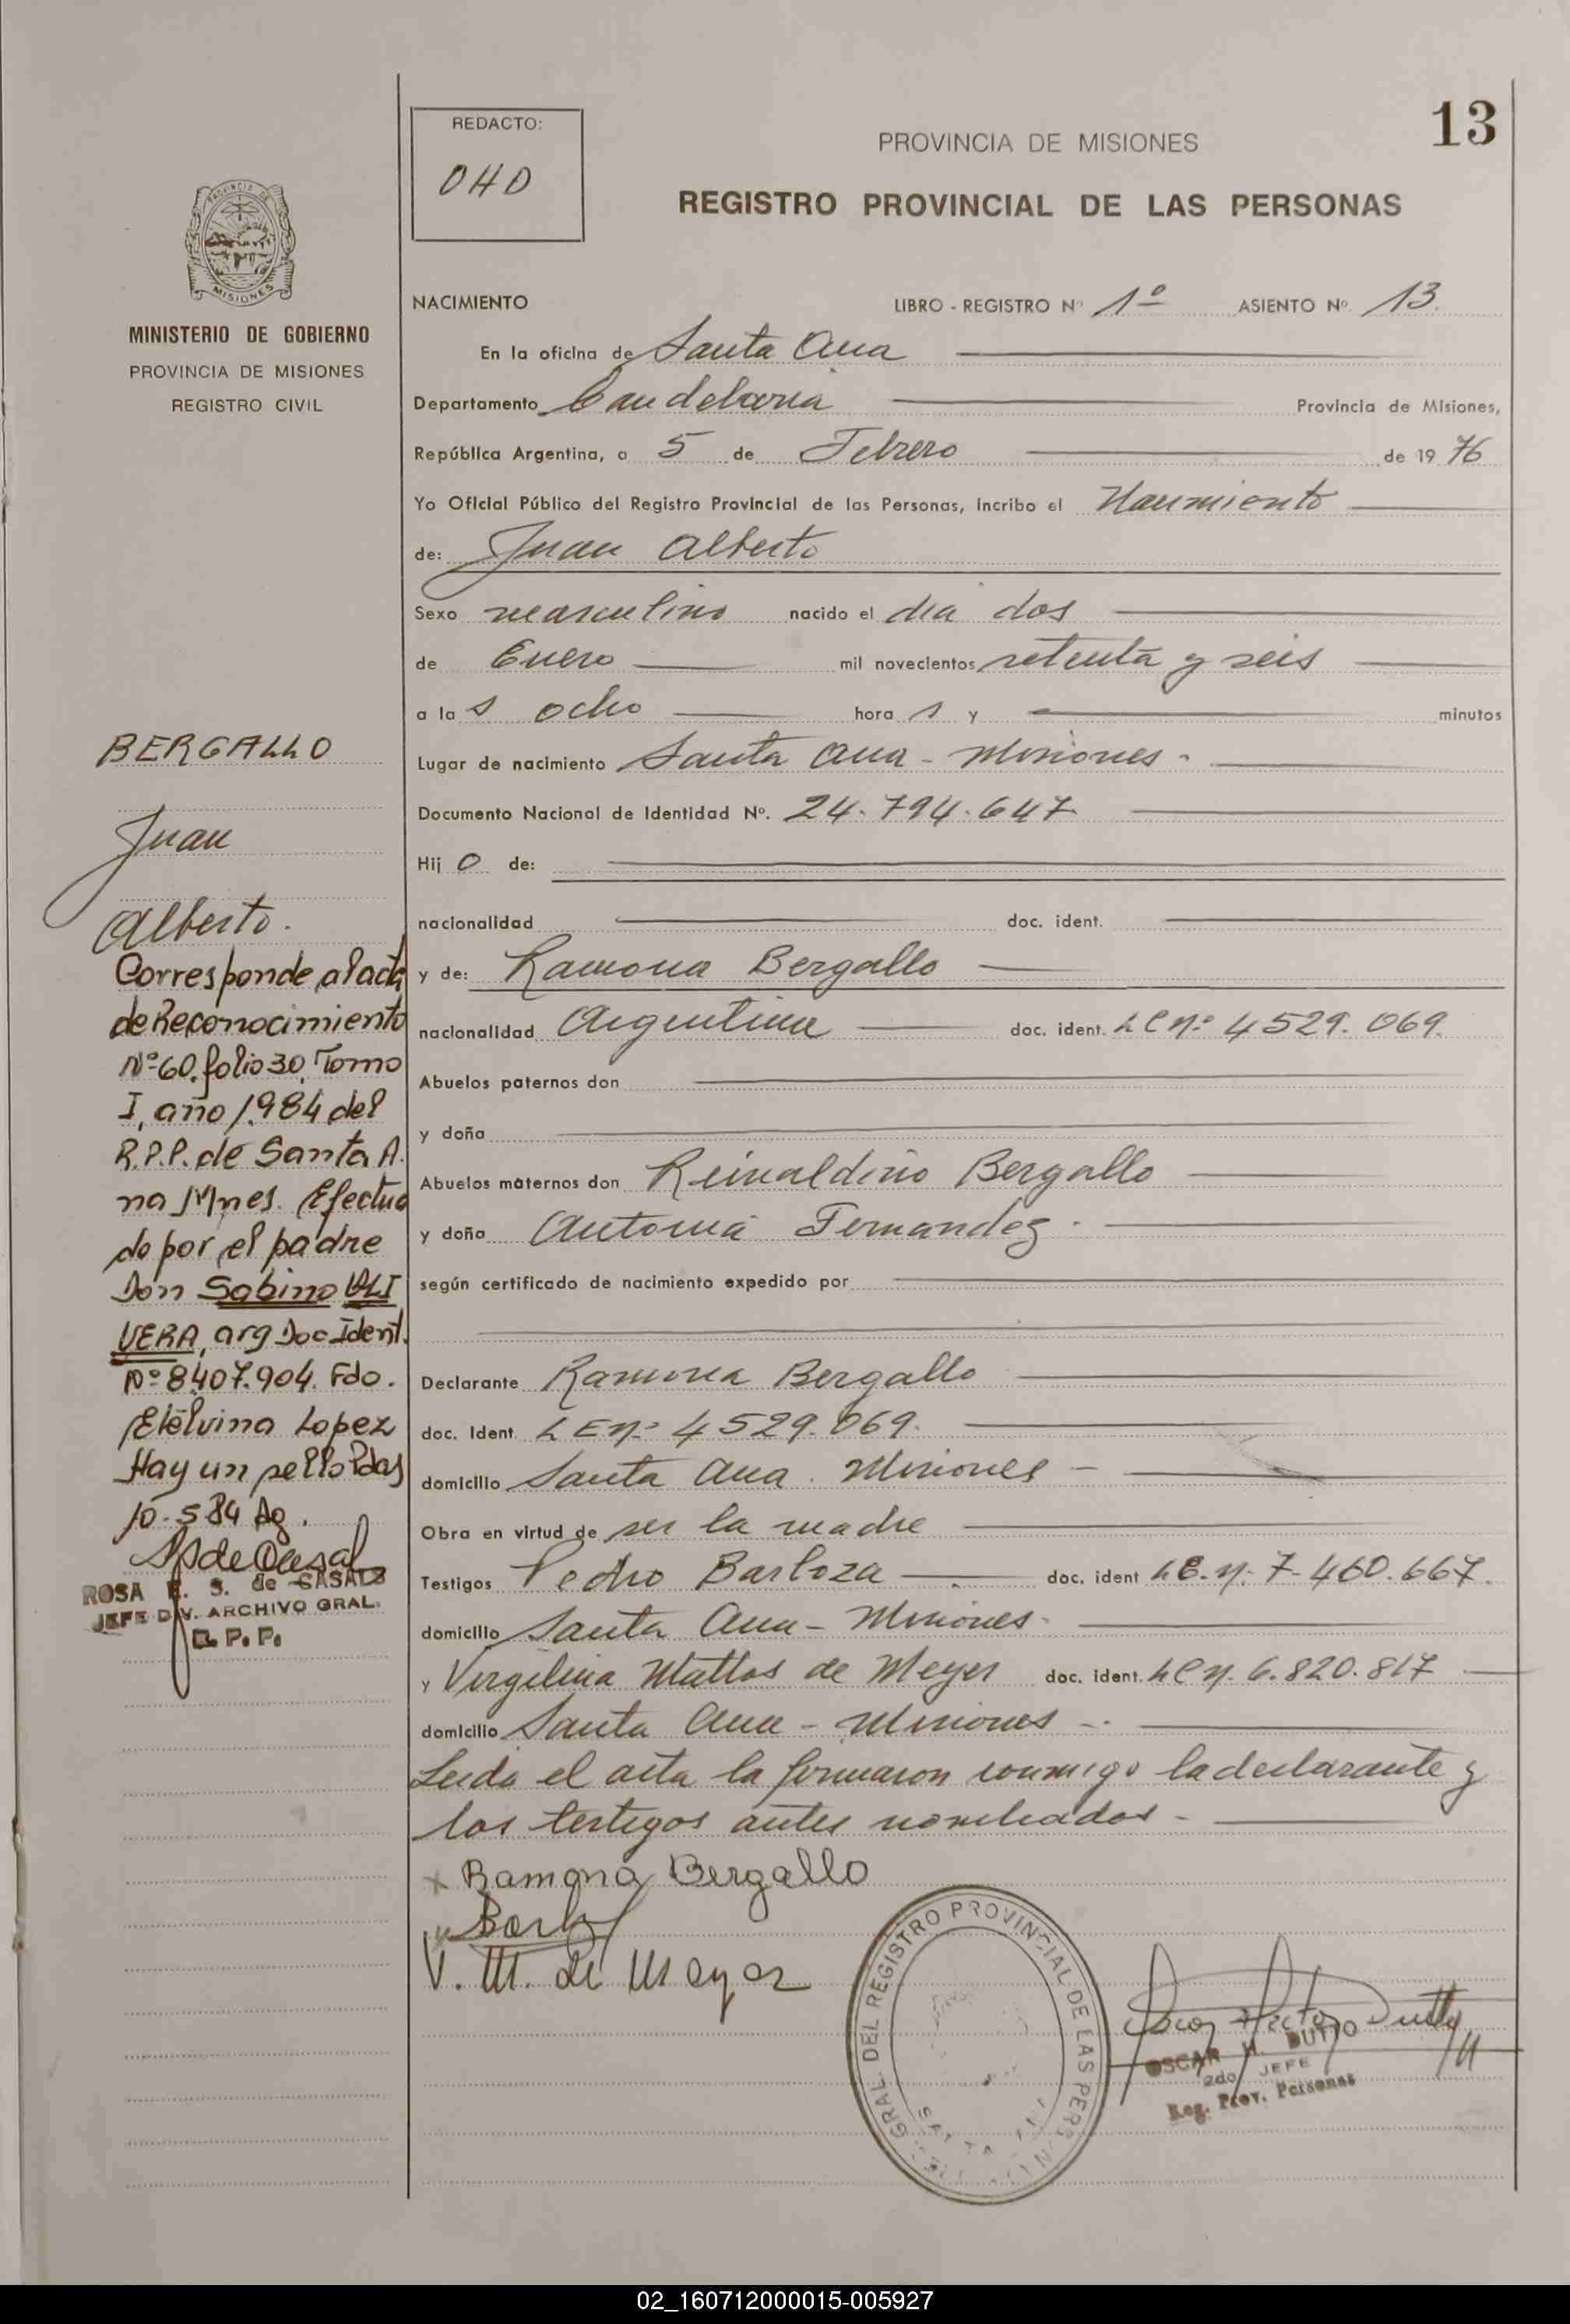 13
REDACTO:
OHD
PROVINCIA DE MISIONES
REGISTRO PROVINCIAL DE LAS PERSONAS
MISIONES
MINISTERIO DE GOBIERNO
PROVINCIA DE MISIONES
REGISTRO CIVIL
NACIMIENTO LIBRO - REGISTRO Nº 1º ASIENTO Nº. 13.
En la oficina de Santa Ana
Departamento Candelaria Provincia de Misiones,
República Argentina, a 5 de Febrero de 19 76
Yo Oficial Público del Registro Provincial de las Personas, incribo el Nacimiento
de: Juan Alberto
Sexo masculino nacido el día dos
de Enero mil novecientos setenta y seis
a la s ocho hora s y minutos
Lugar de nacimiento Santa Ana - Misiones -
Documento Nacional de Identidad Nº. 24.794.647
Hij o de:
nacionalidad doc. ident.
y de: Ramona Bergallo
nacionalidad Argentina doc. ident. LC nº 4529.069.
Abuelos paternos don
y doña
Abuelos maternos don Reinaldino Bergallo
y doña Antonia Fernandez -
según certificado de nacimiento expedido por
Declarante Ramona Bergallo
doc. Ident L E nº 4529.069.
domicilio Santa Ana. Misiones -
Obra en virtud de ser la madre
Testigos Pedro Barboza doc. ident L.E. n. 7.460.667.
domicilio Santa Ana - Misiones -
y Virgilina Mattos de Meyer doc. ident. LC n. 6.820.817
domicilio Santa Ana - Misiones -
Leida el acta la firmaron conmigo la declarante y
los testigos antes nombrados -
x Ramona Bergallo
V. M. de Meyer
BERGALLO
Juan
Alberto.
Corresponde al acta
de Reconocimiento
Nº 60, folio 30, Tomo
I, año 1.984 del
R.P.P. de Santa A.
na Mnes. Efectua
do por el padre
Don Sabino OLI
VERA, arg Doc Ident.
Nº 8407.904. Fdo.
Etelvina Lopez
Hay un sello Pdas
10-584 Ag.
ROSA E. S. de CASALS
JEFE DIV. ARCHIVO GRAL.
R. P. P.
GRAL. DEL REGISTRO PROVINCIAL DE LAS PERS
OSCAR H. DUTTO
2do JEFE
Reg. Prov. Personas
02_160712000015-005927